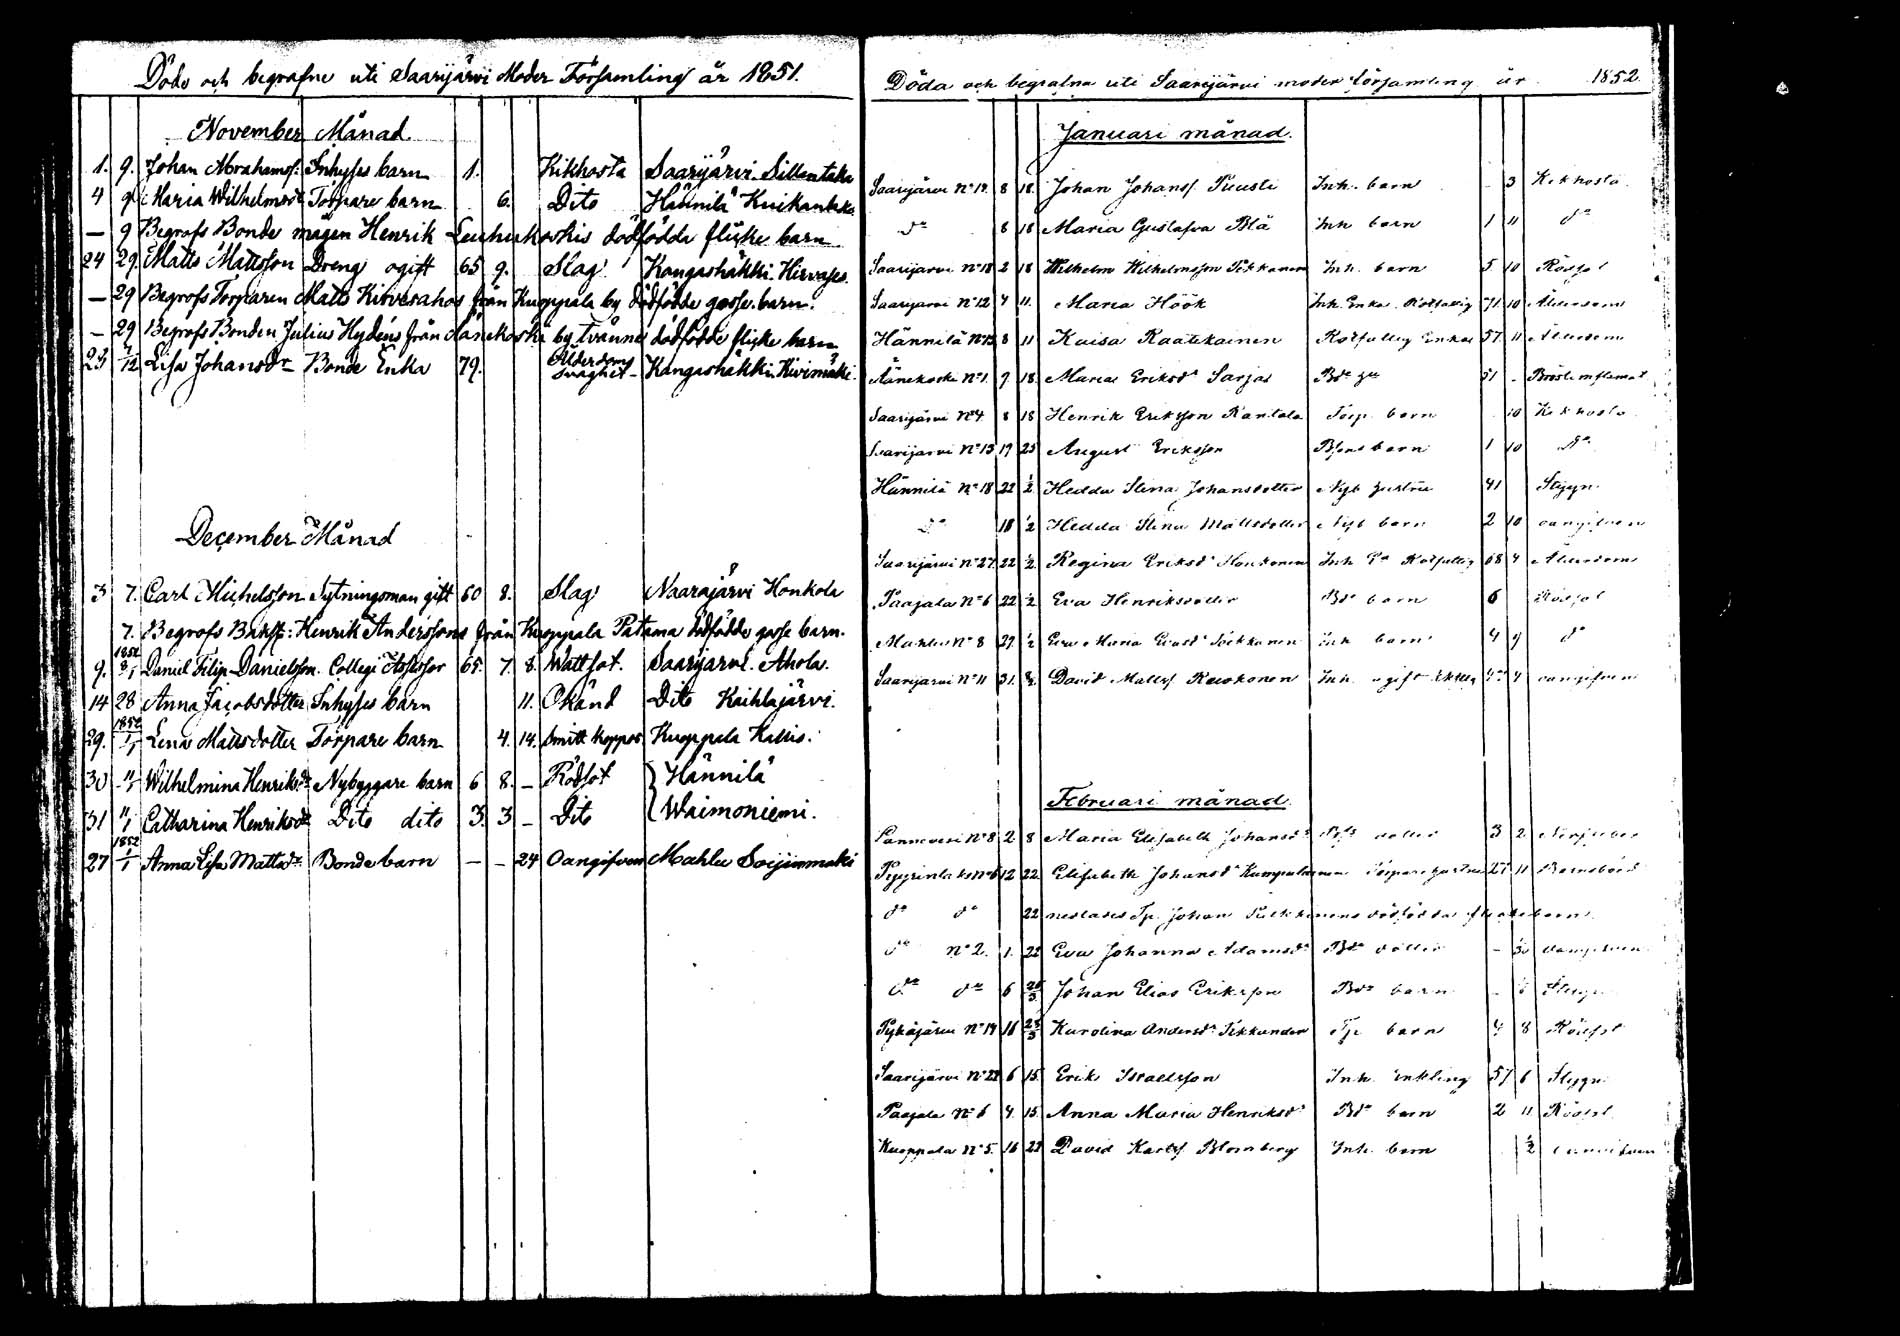 Döde och begrafne uti Saarijärvi Moder Församling år 1851.
November Månad
1. 9. Johan Abrahamsf: Inhyses barn 1. Kikhosta Saarijärvi Sillantaka
4 9 Maria Wilhelmsdr Torpare barn 6. Dito Hännilä
— 9 Begrofs Bonde mågen Henrik Leuhukoskis dödfödda flicke barn
24 29. Matts Mattsson Dreng ogift 65 9. Slag Kangashäkki Hirvases
— 29 Begrofs Torparen Matts Kirvesahos från Kuoppala by dödfödde gosse barn.
— 29 Begrofs Bonden Julius Hydéns från Äänekoski by tvänne dödfödde flicke barn
23 7/12 Lisa Johansdr Bonde Enka 79. Ålderdoms svaghet Kangashäkki Kivimäki
December Månad
3 7. Carl Michelsson Sytningsman gift 60 8. Slag Naarajärvi Honkola
7. Begrofs Henrik Anderssons från Kuoppala Patama dödfödde gosse barn.
9. 1852 Daniel Filip Danielsson Collegi Assessor 65. 7. 8. Wattsot. Saarijärvi Ahola.
14 28 Anna Jacobsdotter Inhyses barn 11. Okänd Dito Kaihlajärvi.
29. 1852 1/1 Lena Mattsdotter Torpare barn 4. 14. Smitt koppor Kuoppala Kallis.
30 11/1 Wilhelmina Henriksdr Nybyggare barn 6 8. — Rödsot Hännilä
31 11/1 Catharina Henriksdr Dito dito 3. 3 — Dito Waimoniemi.
27 1852 1/1 Anna Lisa Mattsdr Bonde barn — — 24 Oangifven Mahlu Soijinmäki
Döda och begrafna uti Saarijärvi moder församling år 1852.
Januari månad.
Saarijärvi No 19. 8 18. Johan Johansf Ruusti Inh. barn - 3 Kikhosta
do 8 18 Maria Gustafva Blå Inh barn 1 11 do
Saarijärvi No 18 2 18 Wilhelm Wilhelmsson Pekkanen Inh. barn 5 10 Rödsot
Saarijärvi No 12 4 11. Maria Höök Inh. Enka. Rotfattig 71 10 Ålderdom
Hännilä No 13 8 11 Kaisa Raatikainen Rotfattig Enka 57. 11 Ålderdom
Äänekoski No 1. 9 18. Maria Eriksdr Sarja 51 - Bröstinflamat
Saarijärvi No 4. 8 18 Henrik Eriksson Rantala Torp. barn 10 Kikhosta
Saarijärvi No 13 19 25 August Eriksson barn 1 10 do
Hännilä No 18 22 1/2 Hedda Stina Johansdotter Nyb hustru 41 Stygn
do 18 1/2 Hedda Stina Mattsdotter Nyb barn 2 10 oangifven
Saarijärvi No 27. 22 1/2 Regina Eriksdr Honkonen Inh Ea Rotfattig 68 4 Ålderdom
Paajala No 6 22 1/2 Eva Henriksdotter Bde barn 6 Rödsot
Mahlu No 8 27. 1/2 Eva Maria barn 4 9 do
Saarijärvi No 11 31. David Mattsf Inh. ogift 4 oangifven
Februari månad.
Lannevesi No 8 2 8 Maria Elisabeth Johansdr dotter 3 2
Pyyrinlaks No 6 12 22 Elisabeth Johansdr Torpare hustru 27 11 Barnsbörd
do do 22 Tp. Johan dödfödda barn.
do No 2. 1. 22 Eva Johanna Adamsdr Bde dotter - oangifven
do do 6 Johan Elias Eriksson Bde barn - Stygn
Pylköjärvi No 19 16 Karolina Andersdr Tp barn 4 8 Rödsot
Saarijärvi No 22 6 15. Erik Israelsson Inh. Enkling 57 6 Stygn
Paajala No 6 4. 15. Anna Maria Henriksdr Bde barn 2 11 Rödsot
Kuoppala No 5. 16 22 David Karlsf Blomberg Inh. barn 1/2 oangifven